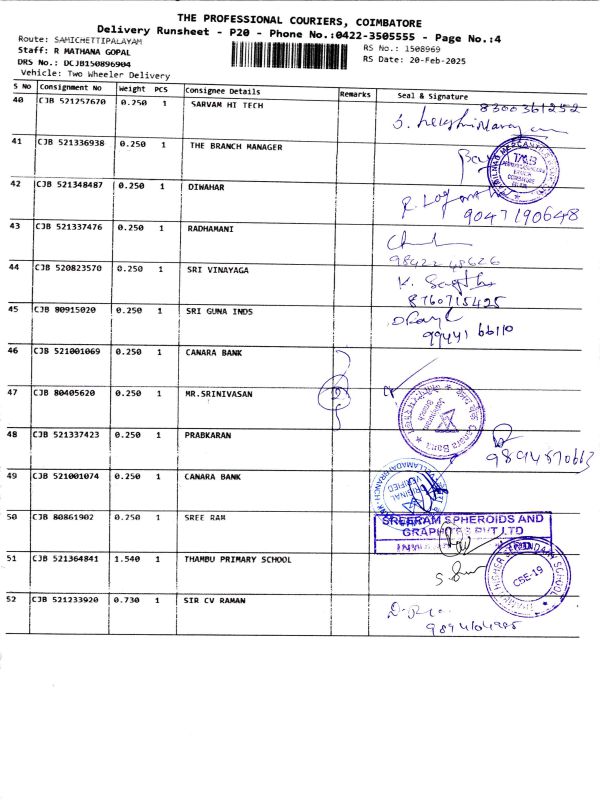 THE PROFESSIONAL COURIERS, COIMBATORE
Delivery Runsheet - P20 - Phone No.:0422-3505555 - Page No.:4
Route: SAMICHETTIPALAYAM
Staff: R MATHANA GOPAL
RS No.: 1508969
DRS No.: DCJB150896904
RS Date: 20-Feb-2025
Vehicle: Two Wheeler Delivery
S No Consignment No Weight PCS Consignee Details Remarks Seal & Signature
40 CJB 521257670 0.250 1 SARVAM HI TECH 8300361252
41 CJB 521336938 0.250 1 THE BRANCH MANAGER
TMB
42 CJB 521348487 0.250 1 DIWAHAR
9047190648
43 CJB 521337476 0.250 1 RADHAMANI
9842248626
44 CJB 520823570 0.250 1 SRI VINAYAGA
8760715425
45 CJB 80915020 0.250 1 SRI GUNA INDS
99441 66110
46 CJB 521001069 0.250 1 CANARA BANK
47 CJB 80405620 0.250 1 MR.SRINIVASAN
Canara Bank
48 CJB 521337423 0.250 1 PRABKARAN
49 CJB 521001074 0.250 1 CANARA BANK
ORIGINAL VERIFIED
50 CJB 80861902 0.250 1 SREE RAM
SREERAM SPHEROIDS AND
51 CJB 521364841 1.540 1 THAMBU PRIMARY SCHOOL
CBE-19
52 CJB 521233920 0.730 1 SIR CV RAMAN